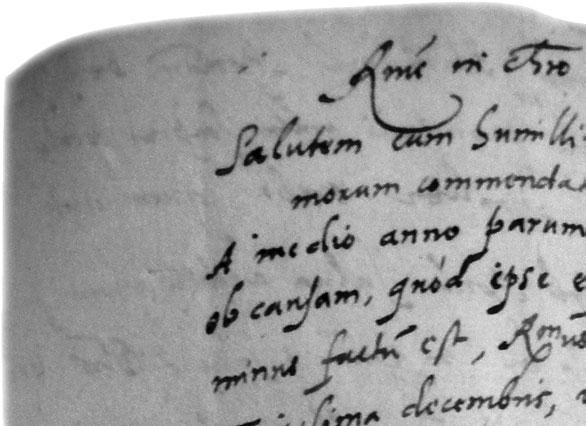 Rme in Chro
Salutem cum humilli-
morum commenda
A medio anno parum
ob causam, quòd ipse e
minus factū est, Rmus
decembris,